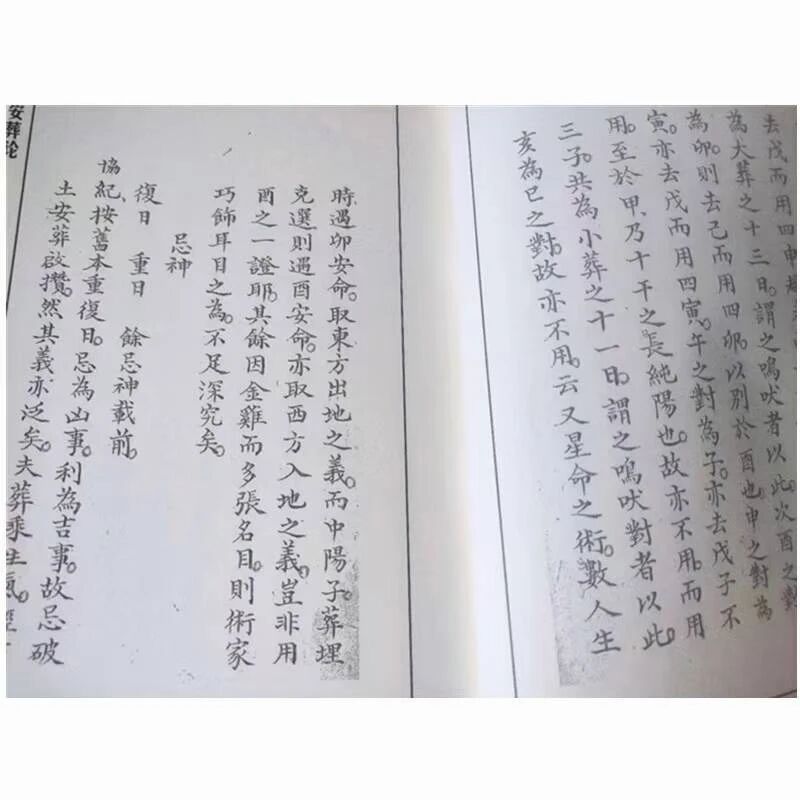 去戊而用四申
為大葬之十三日謂之鳴吠者以此次酉之對
為卯則去己而用四卯以別於酉也申之對為
寅亦去戊而用四寅午之對為子亦去戊子不
用至於甲乃十干之長純陽也故亦不用而用
三子共為小葬之十一日謂之鳴吠對者以此
亥為巳之對故亦不用云又星命之術數人生
時遇卯安命取東方出地之義而中陽子葬埋
克選則遇酉安命亦取西方入地之義豈非用
酉之一證耶其餘因金雞而多張名目則術家
巧飾耳目之為不足深究矣
忌神
復日 重日 餘忌神載前
協紀按舊本重復日忌為凶事利為吉事故忌破
土安葬啟攢然其義亦泛矣夫葬乘生氣經
安葬論